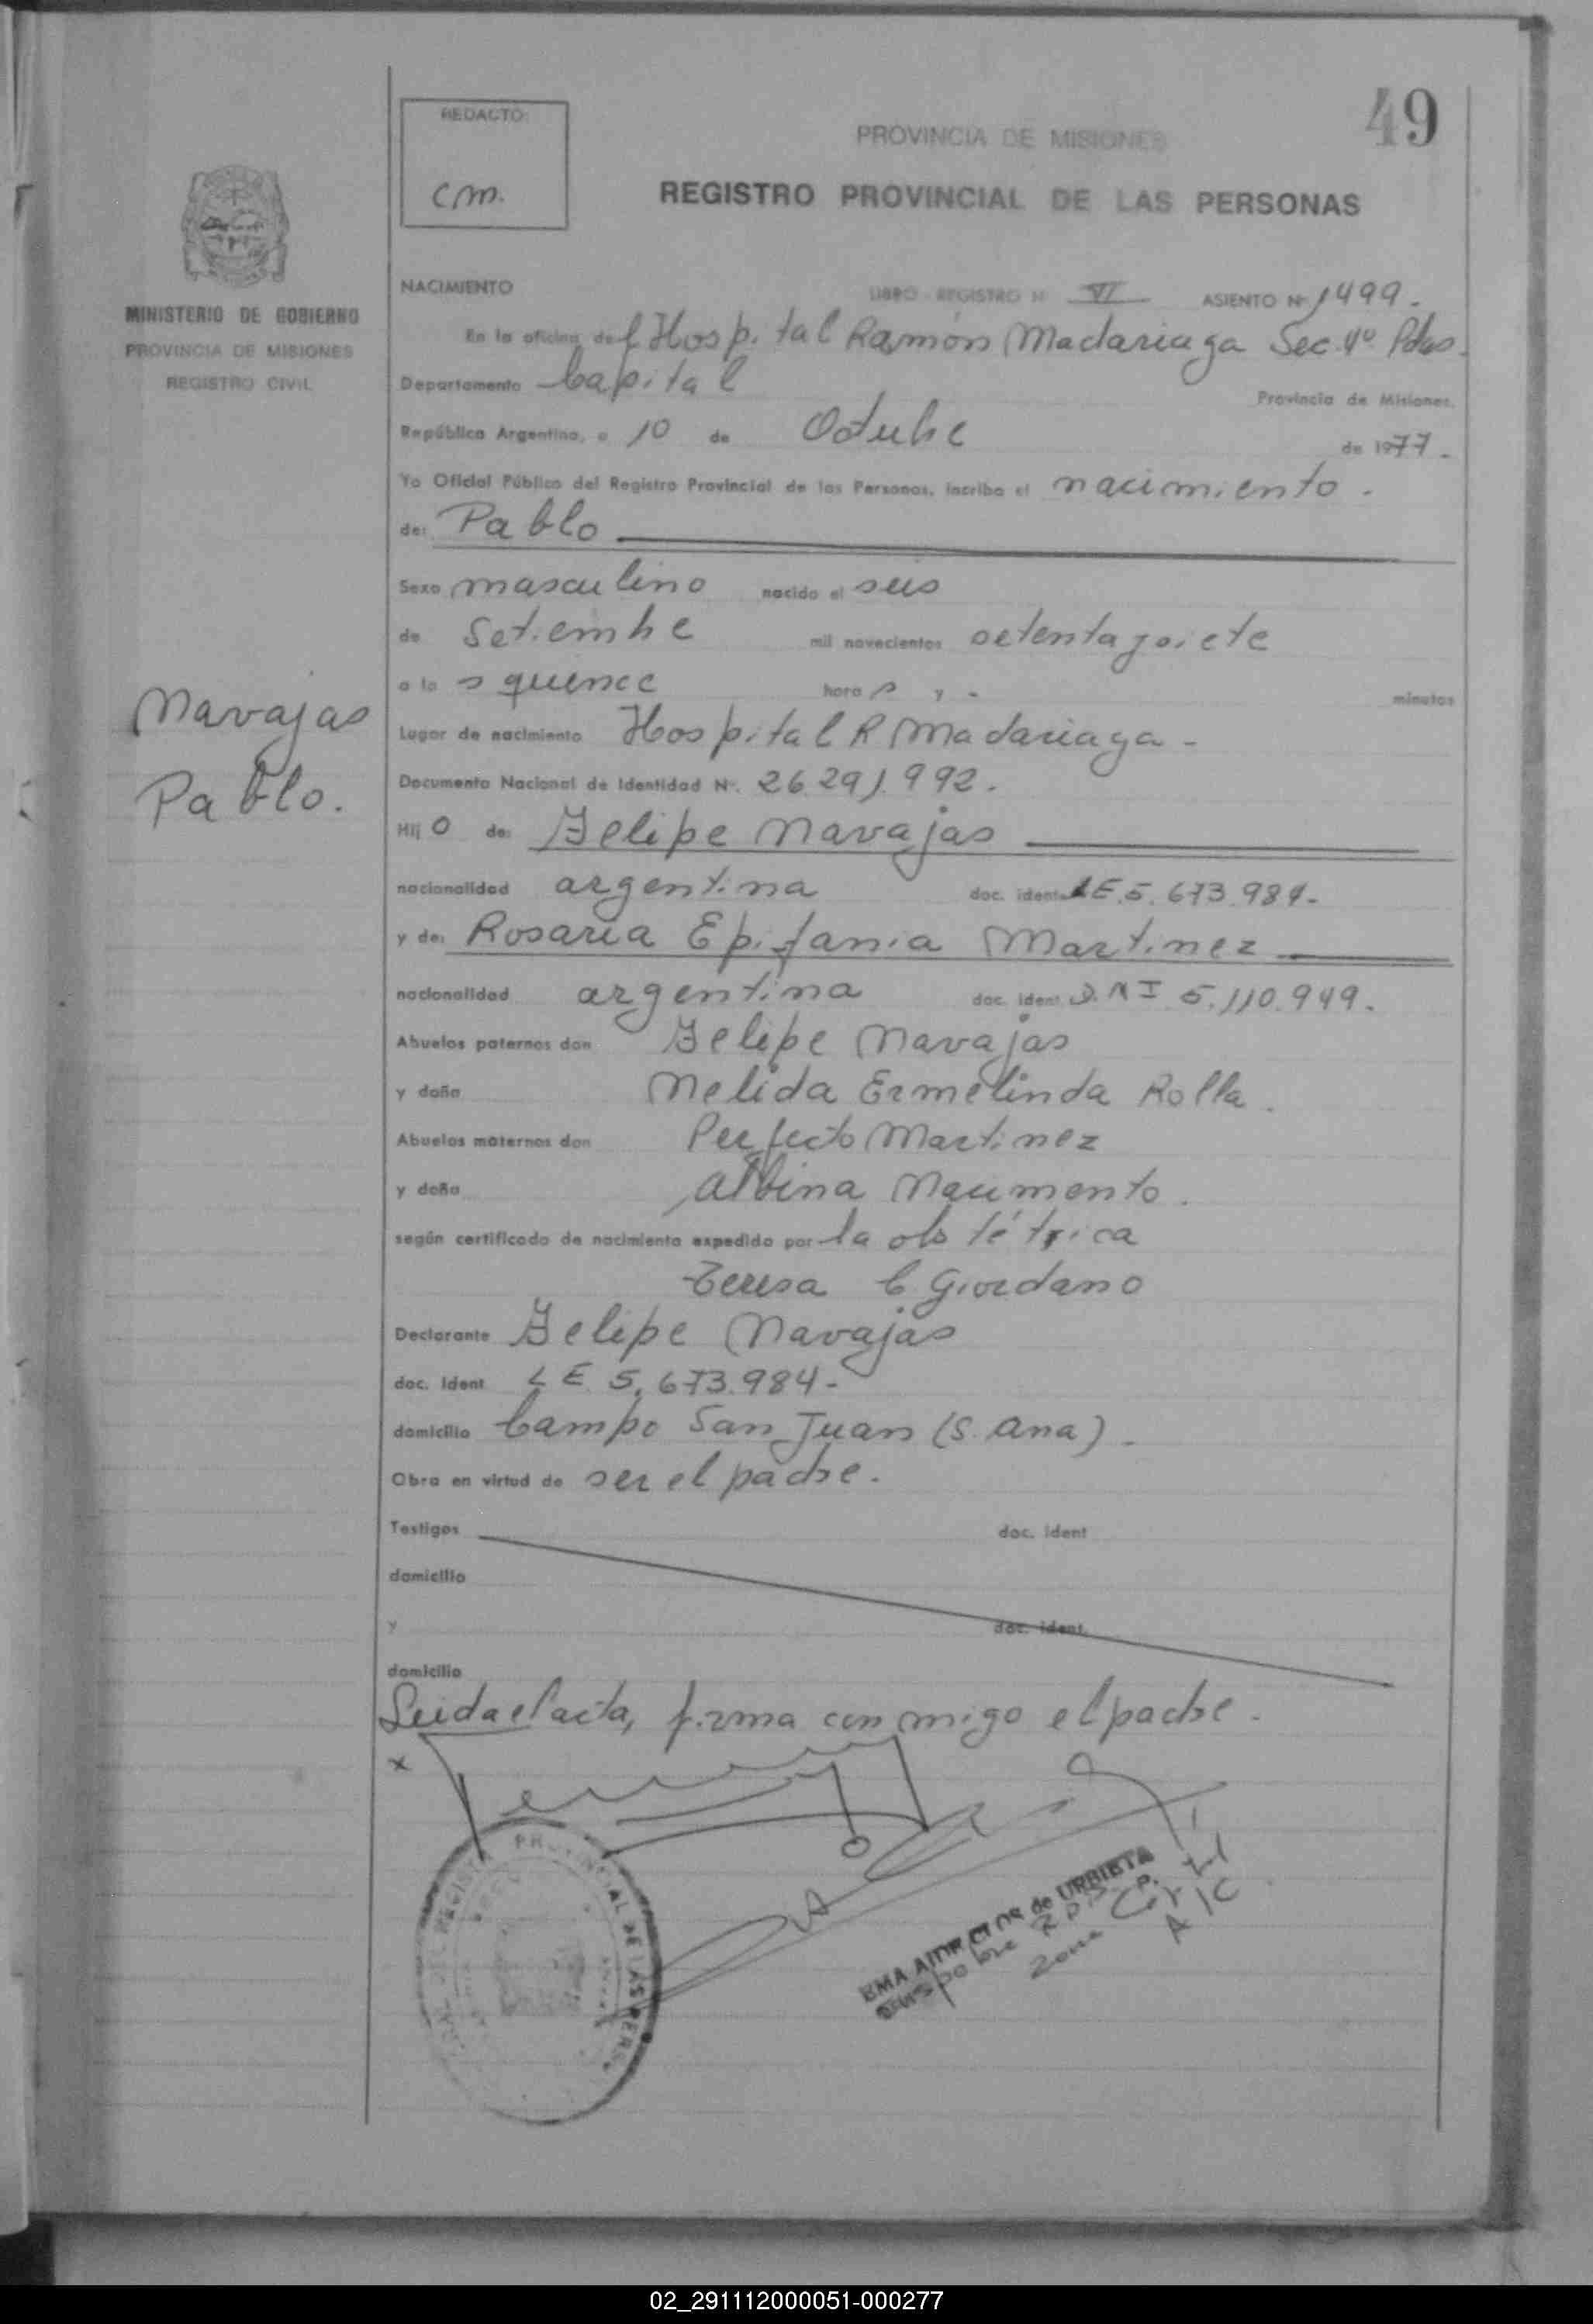 49
REDACTO:
cm.
PROVINCIA DE MISIONES
REGISTRO PROVINCIAL DE LAS PERSONAS
MINISTERIO DE GOBIERNO
PROVINCIA DE MISIONES
REGISTRO CIVIL
NACIMIENTO LIBRO REGISTRO N° VI ASIENTO N° 1499.
En la oficina del Hospital Ramón Madariaga Sec. 4° Pdas.
Departamento Capital Provincia de Misiones.
República Argentina, a 10 de Octubre de 1977.
Yo Oficial Público del Registro Provincial de las Personas, incribo el nacimiento.
de: Pablo
Sexo masculino nacido el seis
de Setiembre mil novecientos setenta y siete
a las quince horas y - minutos
Navajas
Pablo.
Lugar de nacimiento Hospital R Madariaga -
Documento Nacional de Identidad N°. 26.291.992.
Hijo de: Felipe Navajas
nacionalidad argentina doc. ident. LE. 5.673.984-
y de: Rosaria Epifania Martinez
nacionalidad argentina doc. ident. D.N I 5.110.949.
Abuelos paternos don Felipe Navajas
y doña Nelida Ermelinda Rolla.
Abuelos maternos don Perfecto Martinez
y doña Albina Nacimento.
según certificado de nacimiento expedido por la obstétrica
Teresa C Giordano
Declarante Felipe Navajas
doc. ident LE. 5.673.984-
domicilio Campo San Juan (S. Ana).
Obra en virtud de ser el padre.
Testigos doc. ident
domicilio
y doc. ident.
domicilio
Leida el acta, firma conmigo el padre.
x
PROVINCIAL DE LAS PERS.
de URBIETA
Zona
02_291112000051-000277